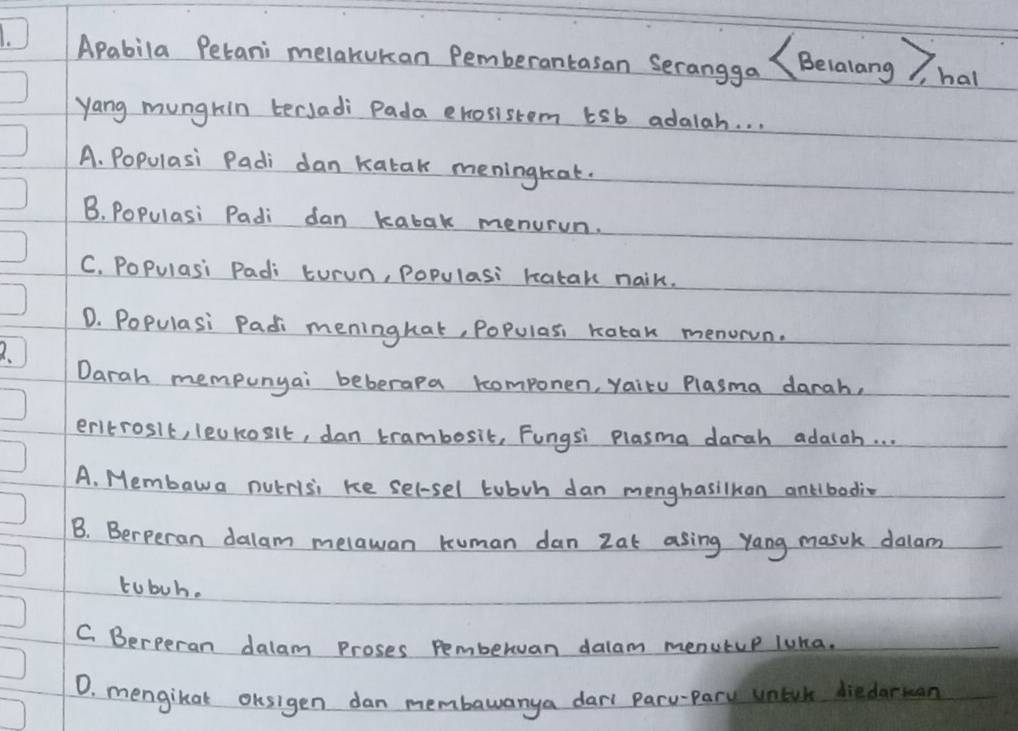 1. Apabila Petani melakukan Pemberantasan Serangga <Belalang>, hal
yang mungkin terjadi Pada ekosistem tsb adalah...
A. Populasi Padi dan katak meningkat.
B. Populasi Padi dan katak menurun.
C. Populasi Padi turun, Populasi katak naik.
D. Populasi Padi meningkat, Populasi katak menurun.
2. Darah mempunyai beberapa komponen, Yaitu Plasma darah,
eritrosit, leukosit, dan trambosit, Fungsi Plasma darah adalah...
A. Membawa nutrisi ke sel-sel tubuh dan menghasilkan antibodi.
B. Berperan dalam melawan kuman dan zat asing yang masuk dalam
tubuh.
C. Berperan dalam Proses Pembekuan dalam menutup luka.
D. mengikat oksigen dan membawanya dari paru-paru untuk diedarkan